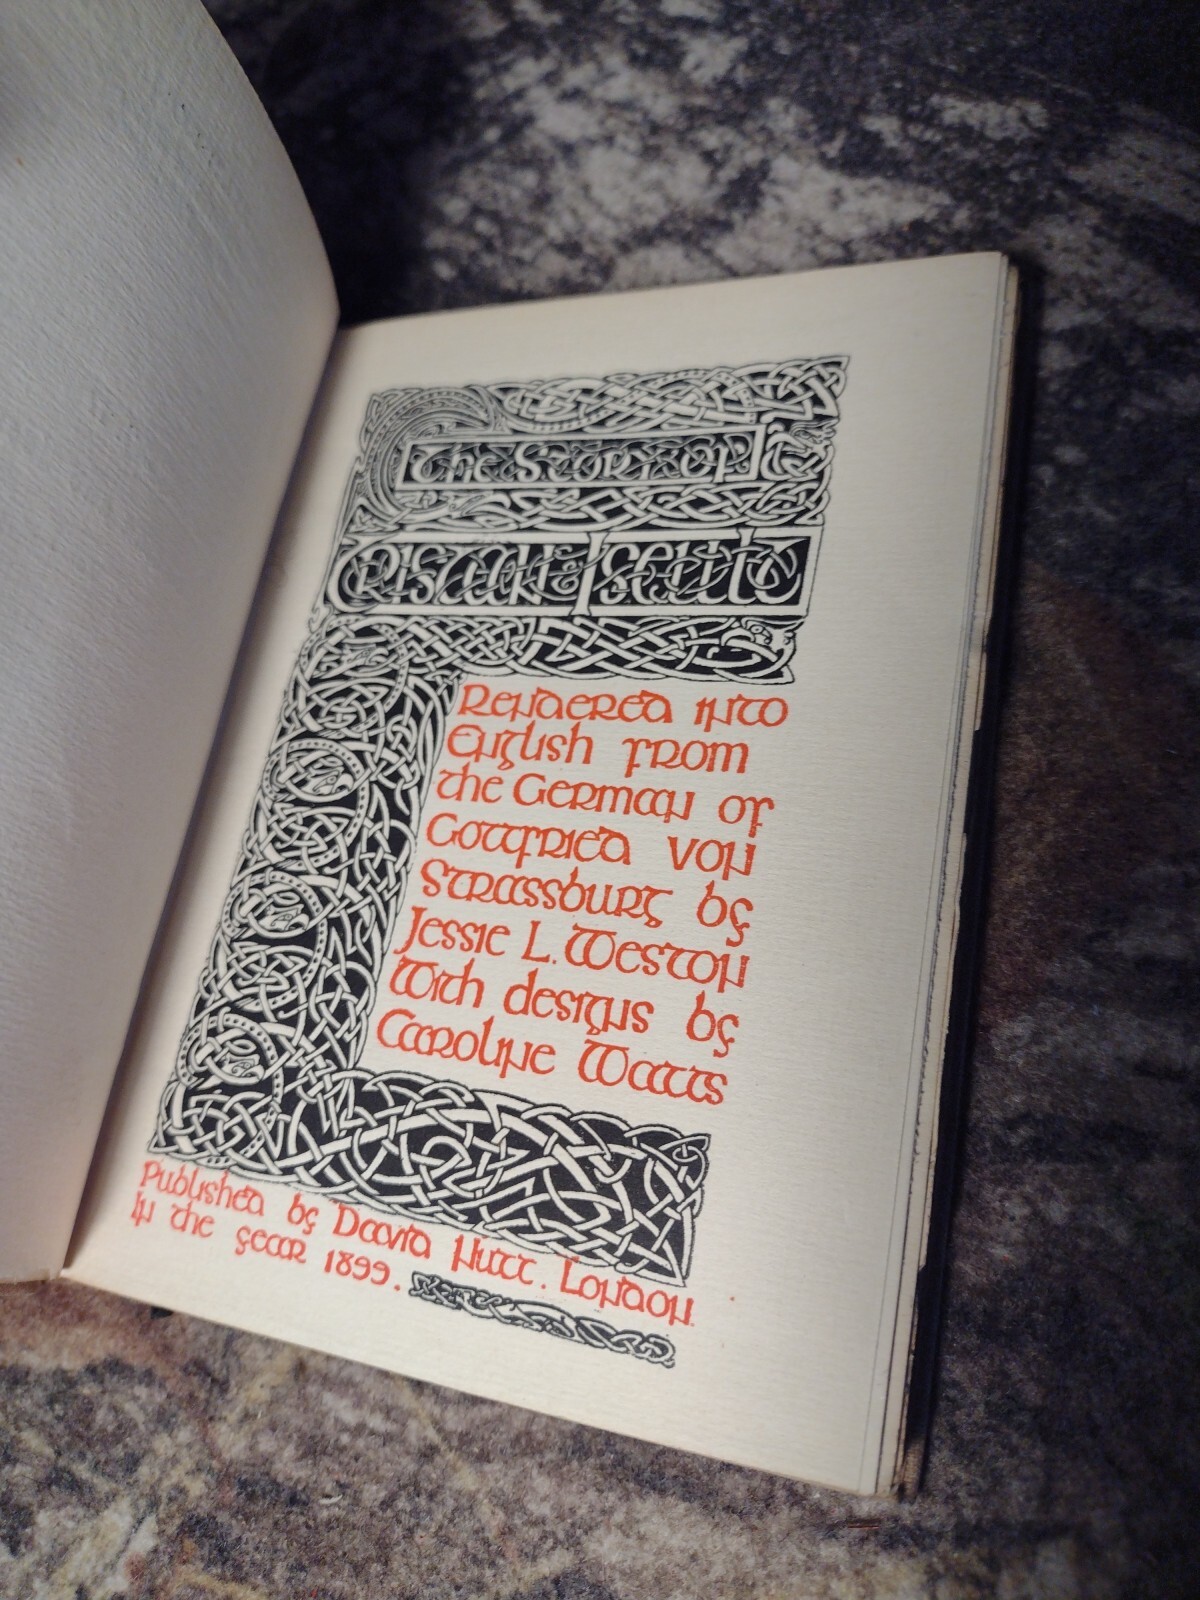 The Story of
Tristan & Iseult
Rendered into
English from
the German of
Gottfried von
Strassburg by
Jessie L. Weston
With designs by
Caroline Watts
Published by David Nutt. London.
In the year 1899.